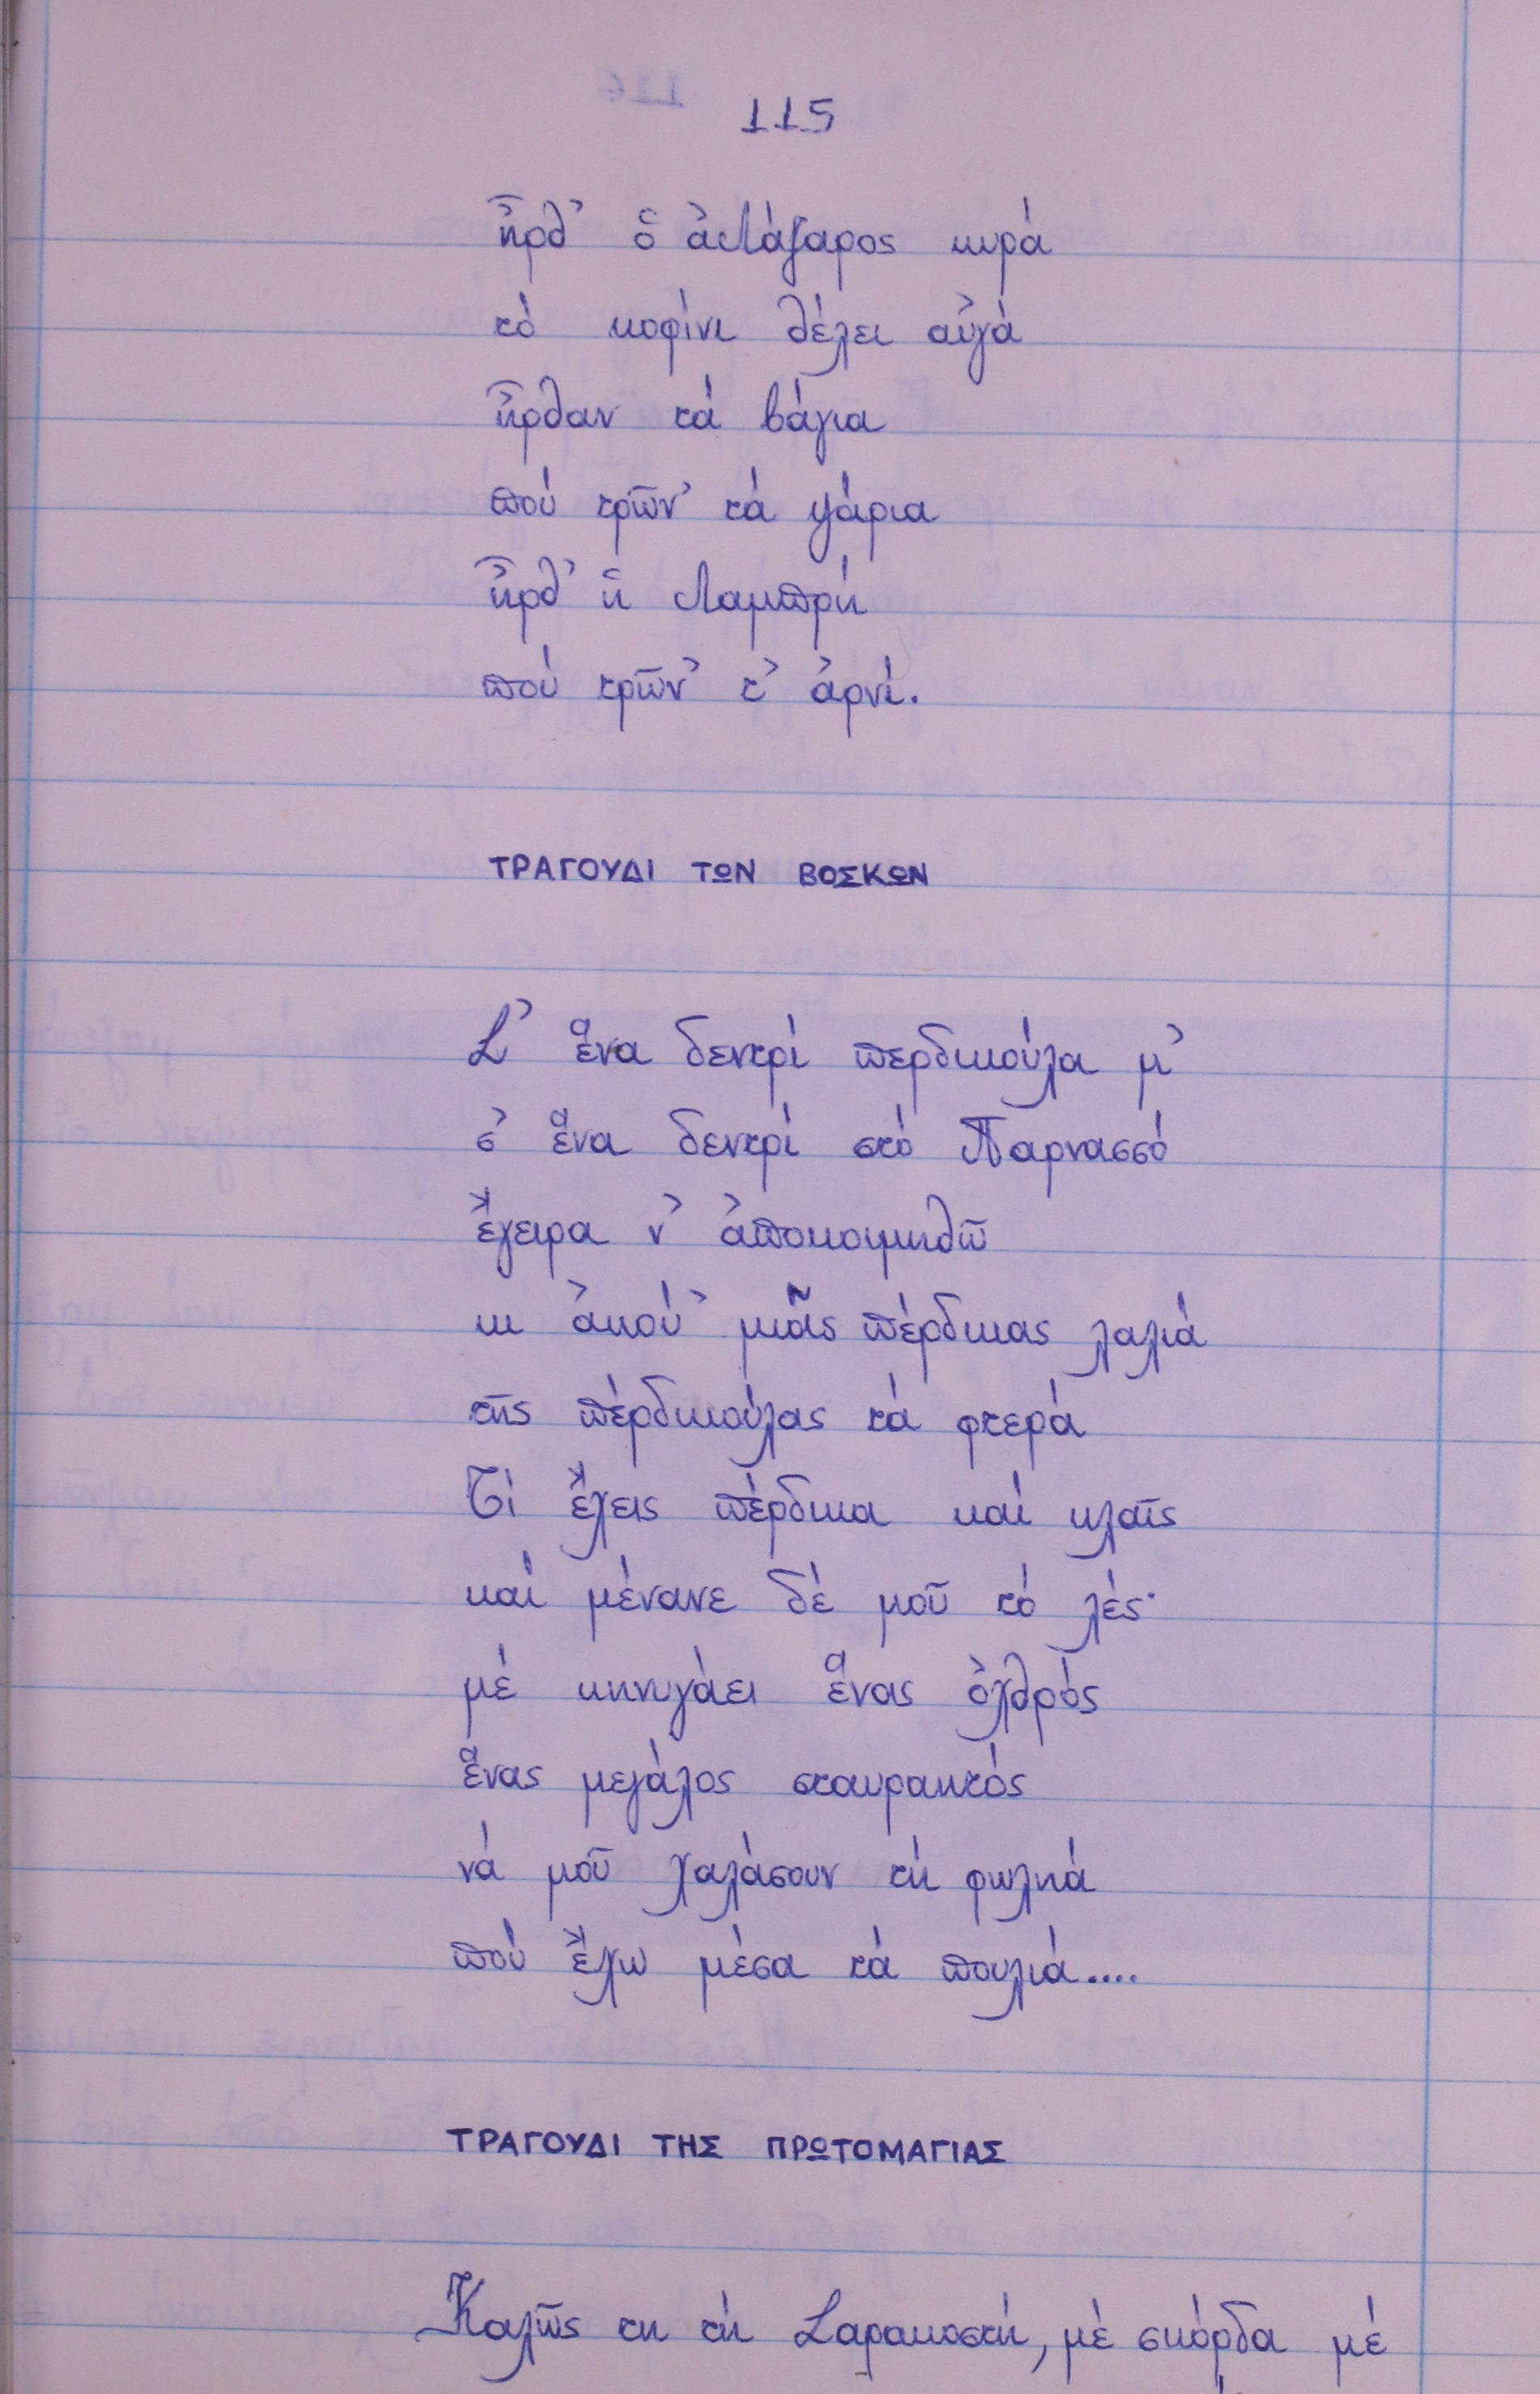 115
ἦρθ' ὁ ἀΛάζαρος κυρά
τό κοφίνι θέλει αὐγά
ἦρθαν τά βάγια
πού τρῶν' τά ψάρια
ἦρθ' ἡ Λαμπρή
πού τρῶν' τ' ἀρνί.
ΤΡΑΓΟΥΔΙ ΤΩΝ ΒΟΣΚΩΝ
Σ' ἕνα δεντρί περδικούλα μ'
σ' ἕνα δεντρί στό Παρνασσό
ἔγειρα ν' ἀποκοιμηθῶ
κι ἀκού' μιᾶς πέρδικας λαλιά
τῆς πέρδικούλας τά φτερά
Τί ἔχεις πέρδικα καί κλαῖς
καί μένανε δέ μοῦ τό λές·
μέ κυνηγάει ἕνας ὀχθρός
ἕνας μεγάλος σταυραητός
νά μοῦ χαλάσουν τή φωληά
πού ἔχω μέσα τά πουλιά....
ΤΡΑΓΟΥΔΙ ΤΗΣ ΠΡΩΤΟΜΑΓΙΑΣ
Καλῶς τη τή Σαρακοστή, μέ σκόρδα μέ